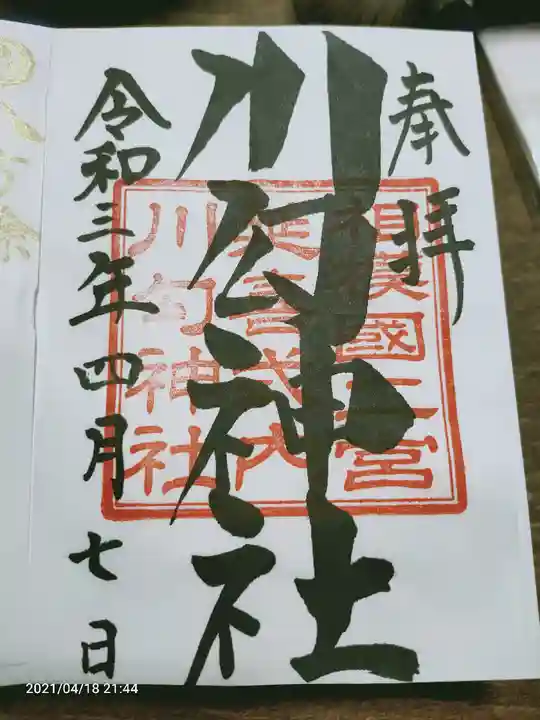 奉拝
相模國二宮
延喜式内
川勾神社
川勾神社
令和三年四月七日
2021/04/18 21:44